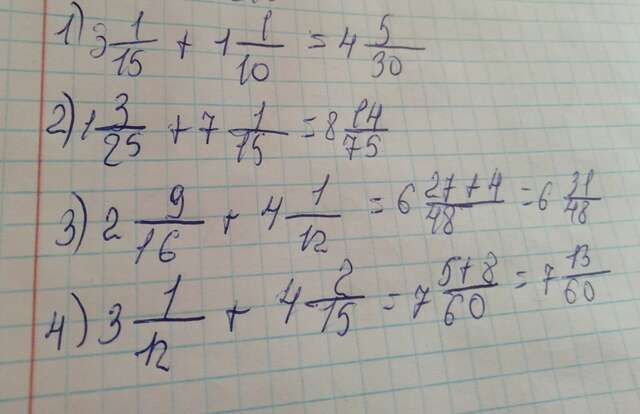 1) 3 1/15 + 1 1/10 = 4 5/30
2) 1 3/25 + 7 1/15 = 8 14/75
3) 2 9/16 + 4 1/12 = 6 27+4/48 = 6 31/48
4) 3 1/12 + 4 2/15 = 7 5+8/60 = 7 13/60